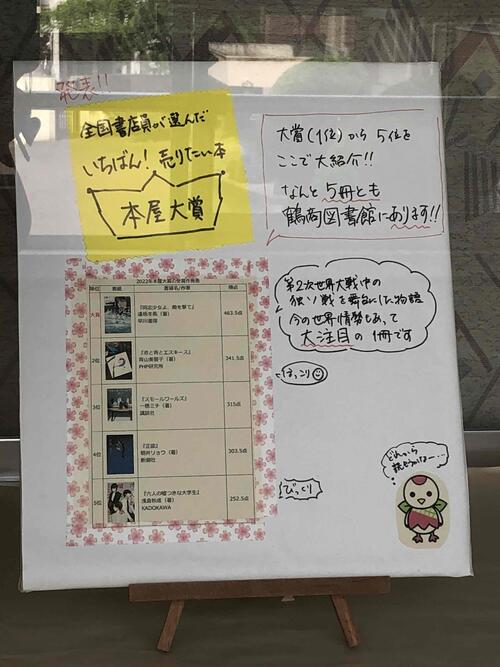 発表!!
全国書店員が選んだ
いちばん! 売りたい本
本屋大賞
大賞(1位)から5位を
ここで大紹介!!
なんと5冊とも
鶴商図書館にあります!!
2022年本屋大賞の受賞作発表
順位 表紙 書籍名/作者 得点
大賞 『同志少女よ、敵を撃て』
逢坂冬馬(著)
早川書房
463.5点
2位 『赤と青とエスキース』
青山美智子(著)
PHP研究所
341.5点
3位 『スモールワールズ』
一穂ミチ(著)
講談社
315点
4位 『正欲』
朝井リョウ(著)
新潮社
303.5点
5位 『六人の嘘つきな大学生』
浅倉秋成(著)
KADOKAWA
252.5点
第2次世界大戦中の
独ソ戦を舞台にした物語
今の世界情勢もあって
大注目の1冊です
ほっこり
びっくり
どれから
読もうかな…